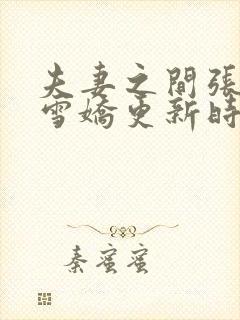 夫妻之間張
雪嬌更新時
秦蜜蜜